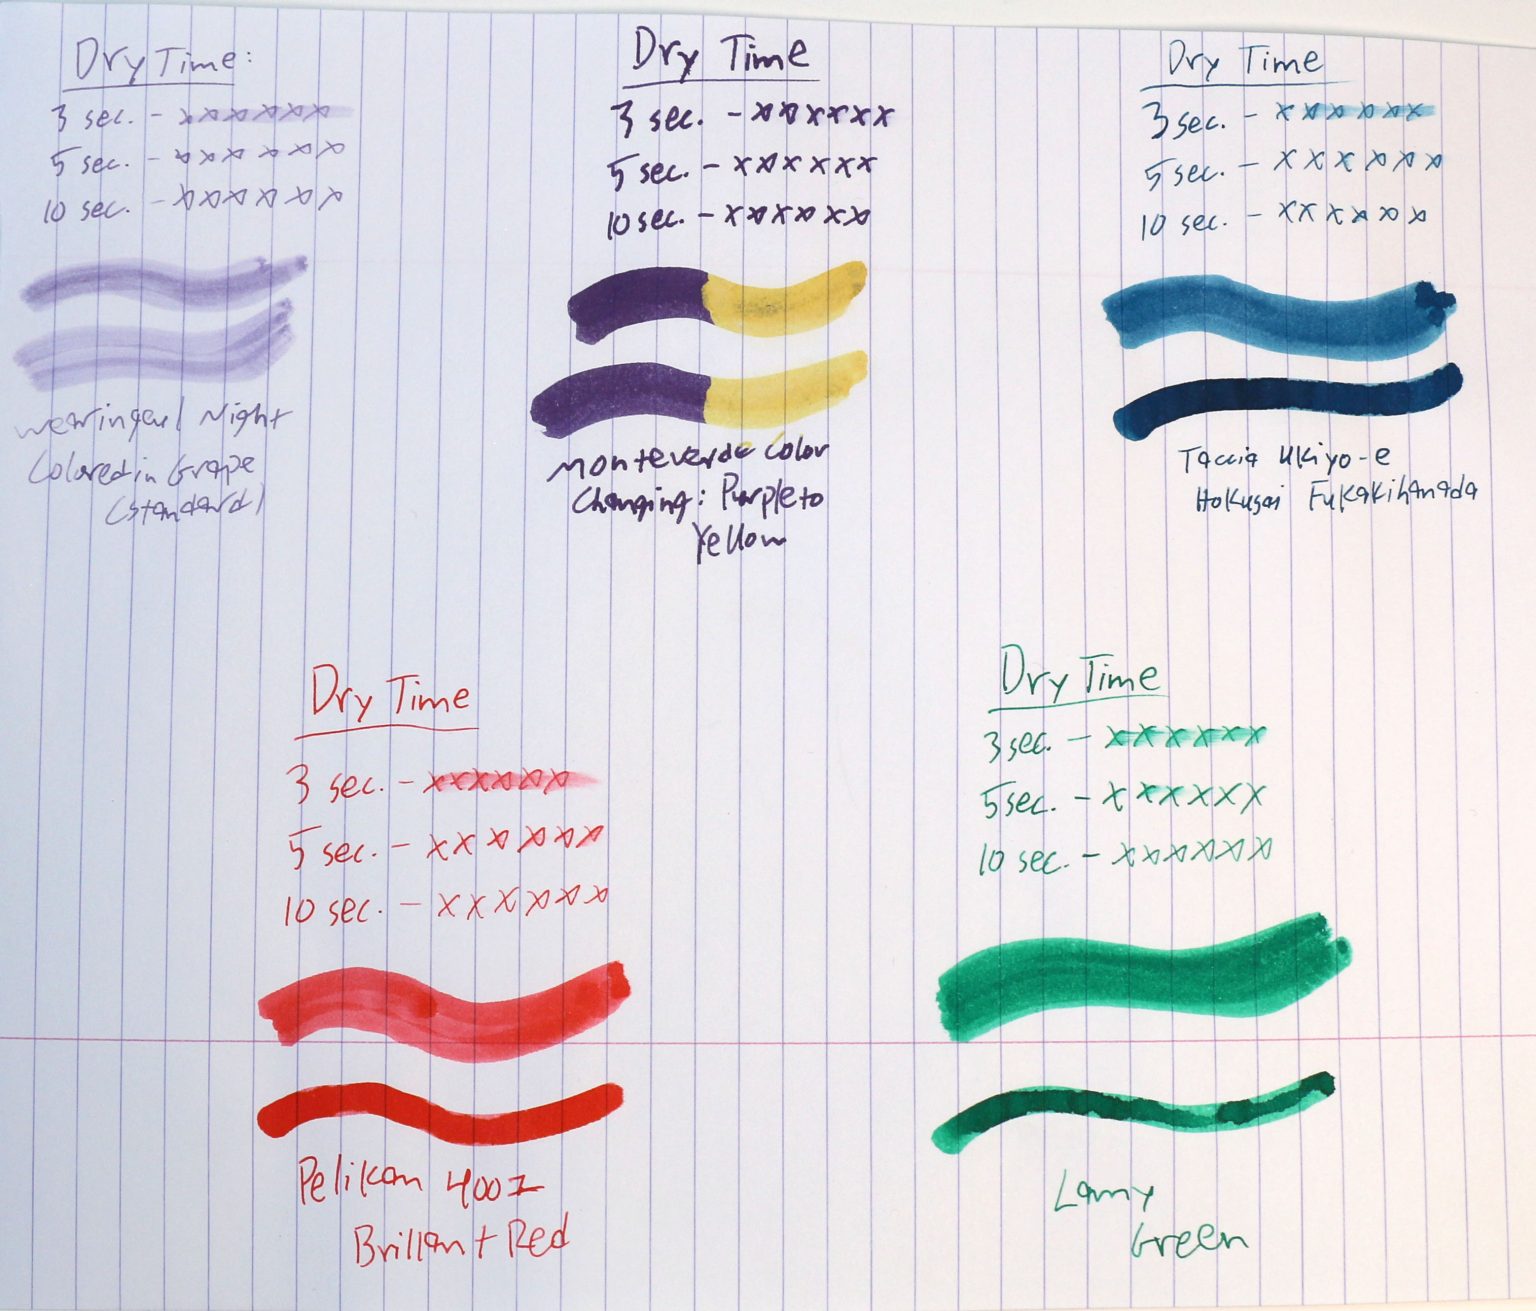 Dry Time:
3 sec. - xxxxxx
5 sec. - xxxxxx
10 sec. - xxxxxx
Wearingeul Night
Colored in Grape
(standard)
Dry Time
3 sec. - xxxxxx
5 sec. - xxxxxx
10 sec. - xxxxxx
Monteverde Color
Changing: Purple to
Yellow
Dry Time
3 sec. - xxxxxx
5 sec. - xxxxxx
10 sec. - xxxxxx
Taccia Ukiyo-e
Hokusai Fukakihanada
Dry Time
3 sec. - xxxxxx
5 sec. - xxxxxx
10 sec. - xxxxxx
Pelikan 4001
Brillant Red
Dry Time
3 sec. - xxxxxx
5 sec. - xxxxxx
10 sec. - xxxxxx
Lamy
Green